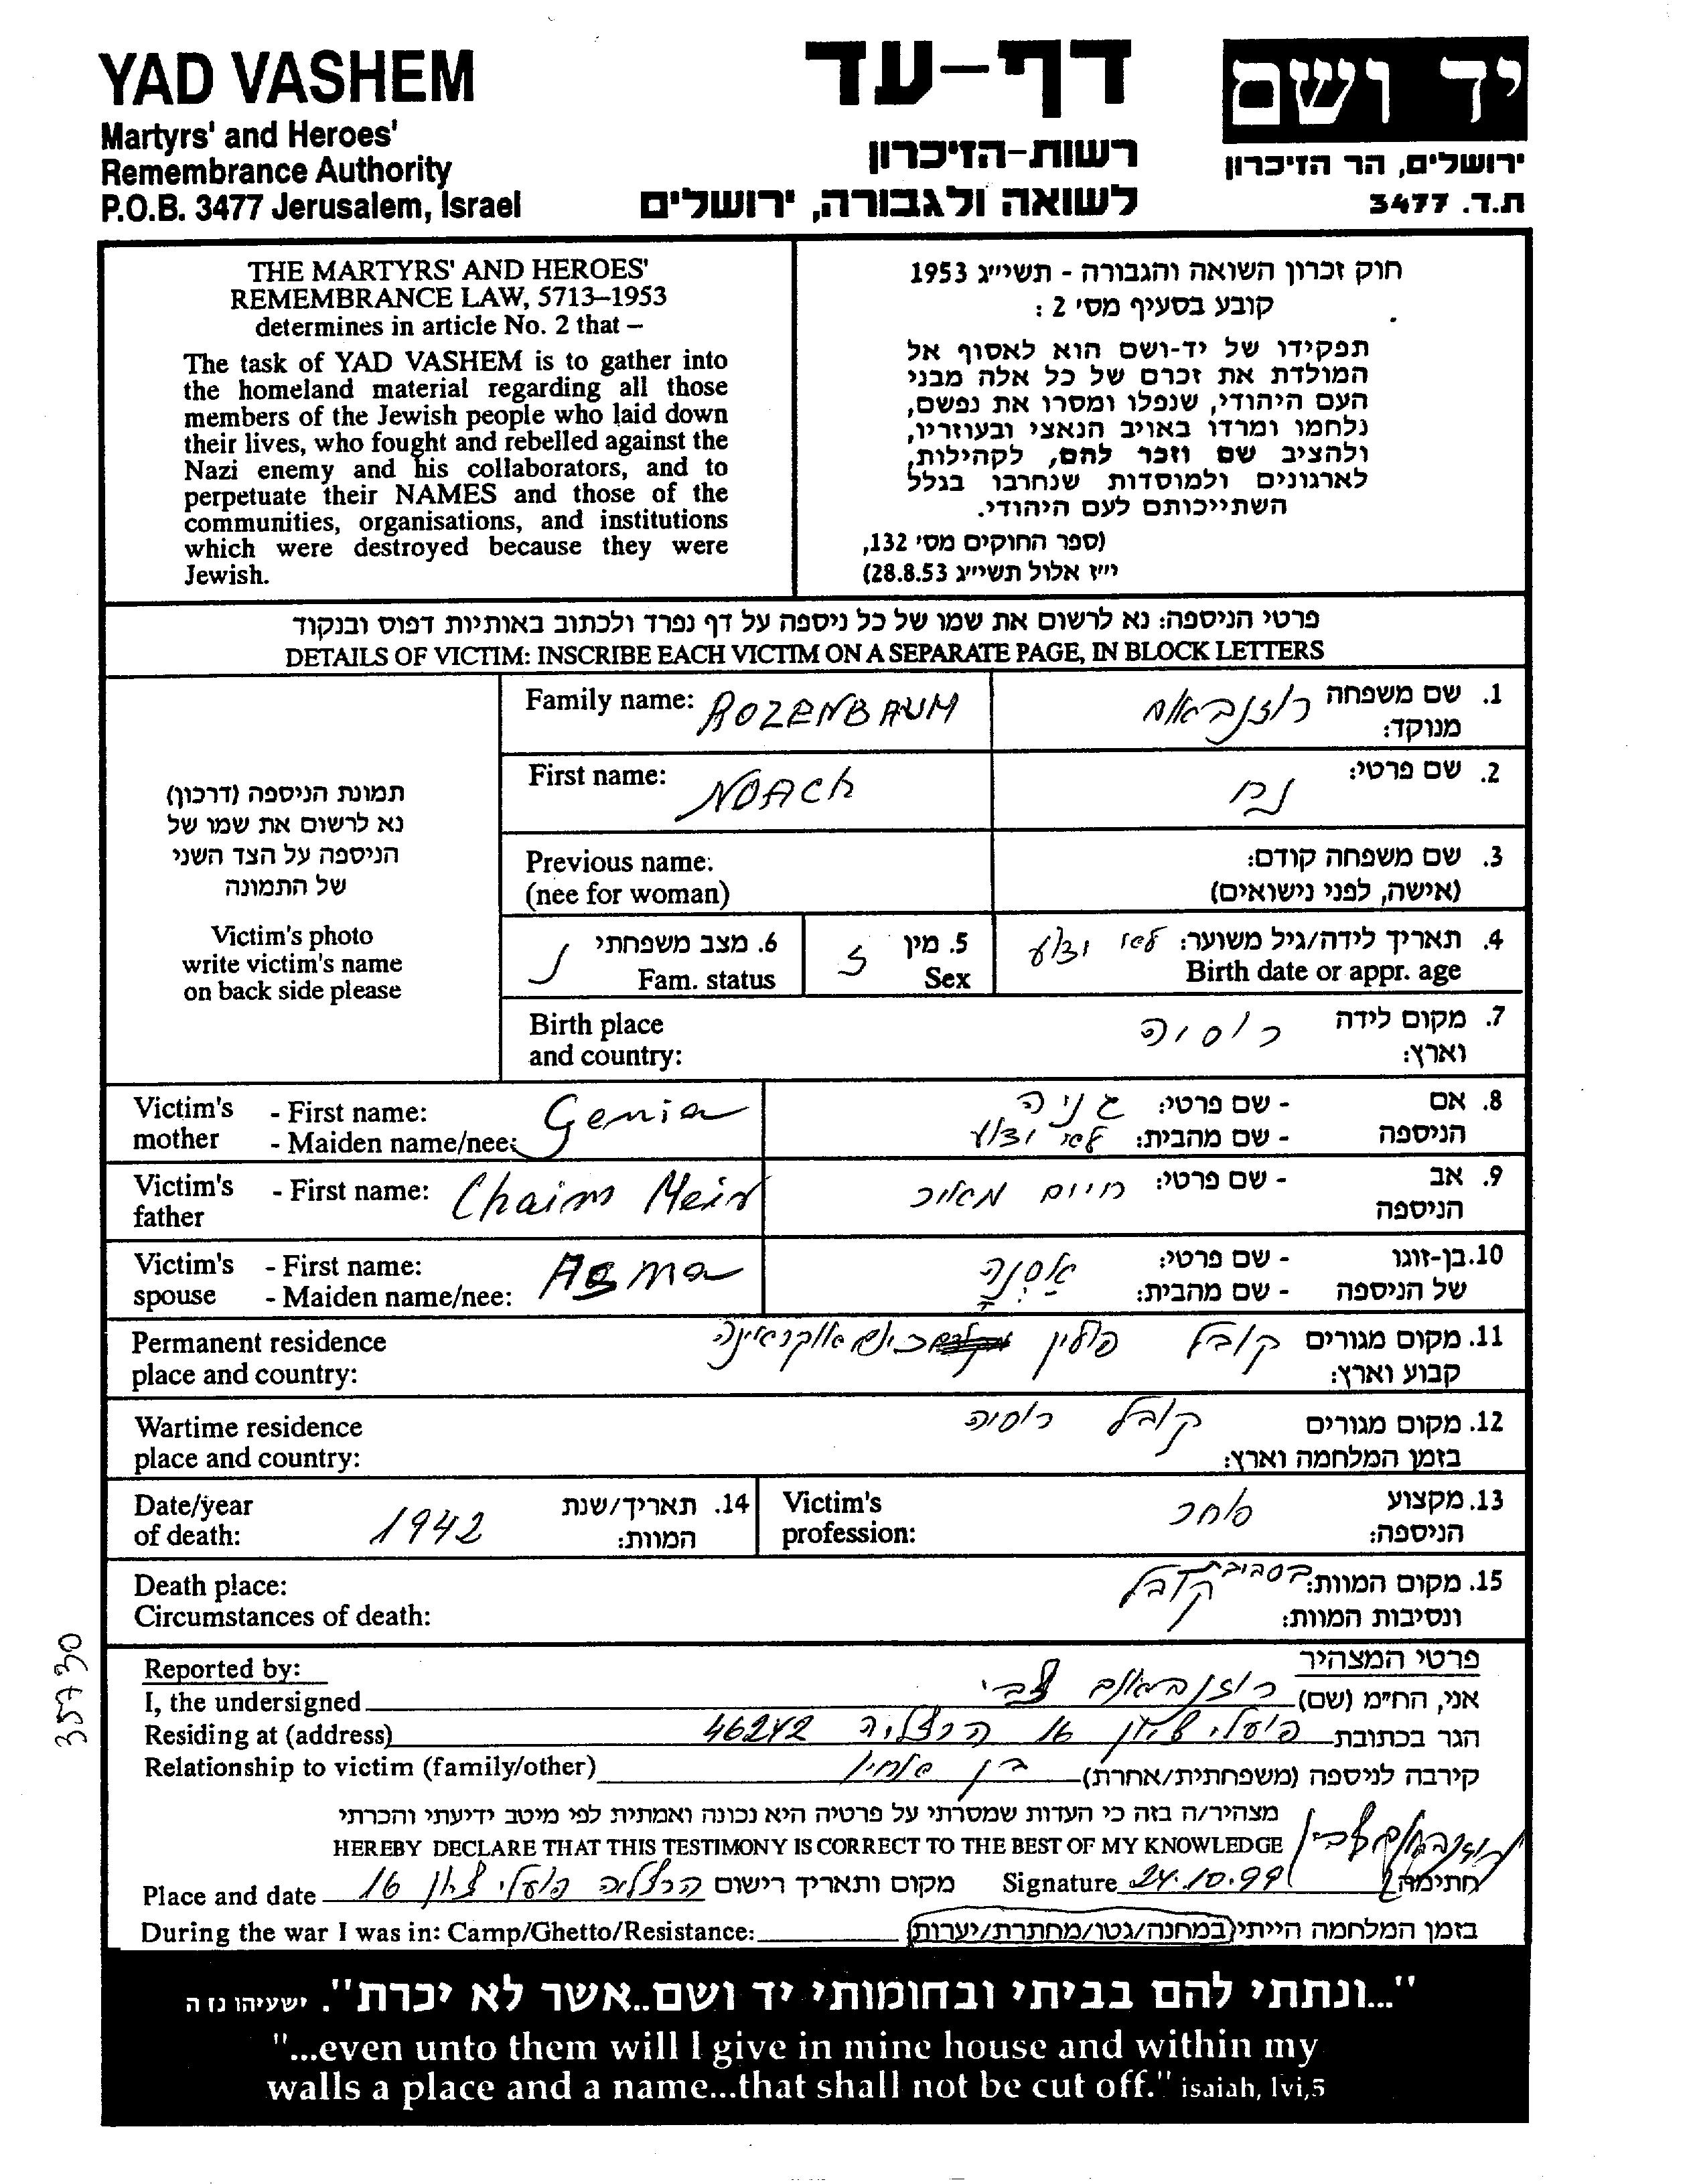 YAD VASHEM
Martyrs' and Heroes'
Remembrance Authority
P.O.B. 3477 Jerusalem, Israel
דף-עד
רשות-הזיכרון
לשואה ולגבורה, ירושלים
יד ושם
ירושלים, הר הזיכרון
ת.ד. 3477
THE MARTYRS' AND HEROES'
REMEMBRANCE LAW, 5713–1953
determines in article No. 2 that –
The task of YAD VASHEM is to gather into
the homeland material regarding all those
members of the Jewish people who laid down
their lives, who fought and rebelled against the
Nazi enemy and his collaborators, and to
perpetuate their NAMES and those of the
communities, organisations, and institutions
which were destroyed because they were
Jewish.
חוק זכרון השואה והגבורה - תשי״ג 1953
קובע בסעיף מס' 2 :
תפקידו של יד-ושם הוא לאסוף אל
המולדת את זכרם של כל אלה מבני
העם היהודי, שנפלו ומסרו את נפשם,
נלחמו ומרדו באויב הנאצי ובעוזריו,
ולהציב שם וזכר להם, לקהילות,
לארגונים ולמוסדות שנחרבו בגלל
השתייכותם לעם היהודי.
(ספר החוקים מס' 132,
י״ז אלול תשי״ג 28.8.53)
פרטי הניספה: נא לרשום את שמו של כל ניספה על דף נפרד ולכתוב באותיות דפוס ובנקוד
DETAILS OF VICTIM: INSCRIBE EACH VICTIM ON A SEPARATE PAGE, IN BLOCK LETTERS
תמונת הניספה (דרכון)
נא לרשום את שמו של
הניספה על הצד השני
של התמונה
Victim's photo
write victim's name
on back side please
Family name: ROZENBAUM
1. שם משפחה רוזנבאום
מנוקד:
First name: NOACH
2. שם פרטי: נח
Previous name:
(nee for woman)
3. שם משפחה קודם:
(אישה, לפני נישואים)
4. תאריך לידה/גיל משוער: לא ידוע
Birth date or appr. age
5. מין ז
Sex
6. מצב משפחתי נ
Fam. status
Birth place
and country:
7. מקום לידה רוסיה
וארץ:
Victim's - First name: Genia
mother - Maiden name/nee:
8. אם - שם פרטי: גניה
הניספה - שם מהבית: לא ידוע
Victim's - First name: Chaim Meir
father
9. אב - שם פרטי: חיים מאיר
הניספה
Victim's - First name:
spouse - Maiden name/nee:
10. בן-זוגו - שם פרטי: אַסְנָה
של הניספה - שם מהבית:
Permanent residence
place and country:
11. מקום מגורים קובל פולין כיום אוקראינה
קבוע וארץ:
Wartime residence
place and country:
12. מקום מגורים קובל רוסיה
בזמן המלחמה וארץ:
Date/year
of death: 1942
14. תאריך/שנת
המוות:
Victim's
profession:
13. מקצוע סוחר
הניספה:
Death place:
Circumstances of death:
15. מקום המוות: בסביבת קובל
ונסיבות המוות:
35730
Reported by:
פרטי המצהיר
I, the undersigned
אני, הח״מ (שם) רוזנבאום צבי
Residing at (address)
הגר בכתובת פועלי ציון 16 הרצליה 46242
Relationship to victim (family/other)
קירבה לניספה (משפחתית/אחרת) בן אחיו
מצהיר/ה בזה כי העדות שמסרתי על פרטיה היא נכונה ואמתית לפי מיטב ידיעתי והכרתי
HEREBY DECLARE THAT THIS TESTIMONY IS CORRECT TO THE BEST OF MY KNOWLEDGE
רוזנבאום צבי
Place and date
מקום ותאריך רישום הרצליה פועלי ציון 16
Signature 24.10.99 חתימה
During the war I was in: Camp/Ghetto/Resistance:
בזמן המלחמה הייתי (במחנה/גטו/מחתרת/יערות)
"...ונתתי להם בביתי ובחומותי יד ושם..אשר לא יכרת". ישעיהו נו ה
"...even unto them will I give in mine house and within my
walls a place and a name...that shall not be cut off." isaiah, lvi,5